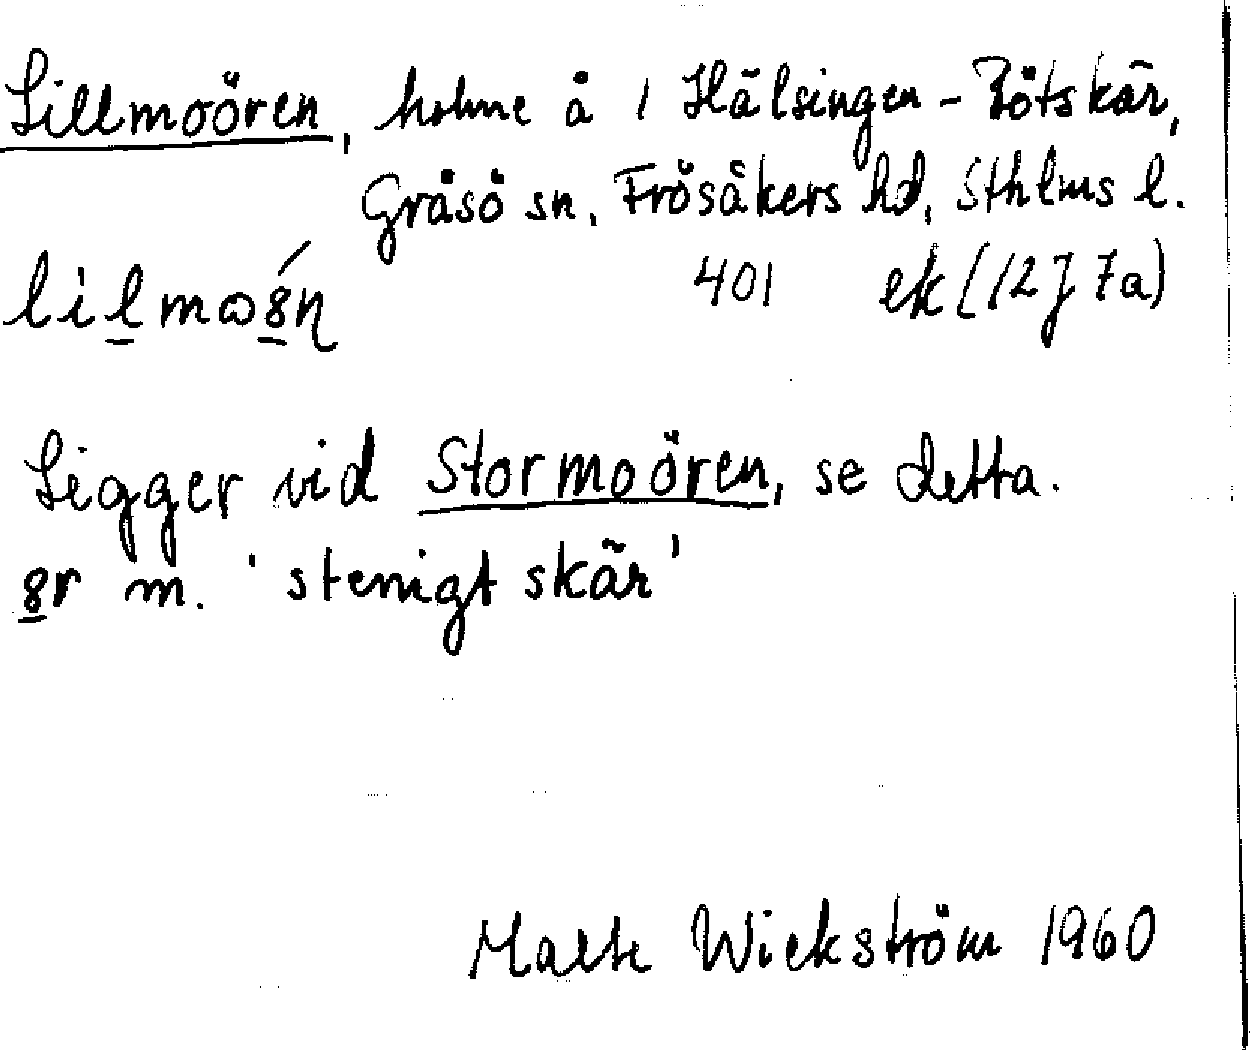 Lillmoören, holme å 1 Hälsingen - Bötskär,
Gräsö sn, Frösåkers hd, Sthlms l.
401 ek (12 J 7a)
Ligger vid Stormoören, se detta.
m. 'stenigt skär'
Malte Wickström 1960